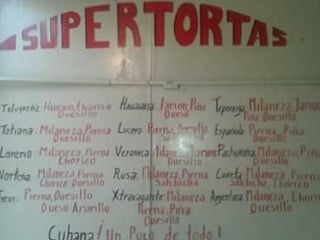 SUPERTORTAS
Toluqeña: Huevo, Chorizo
Quesillo
Tatiana: Milaneza, Pierna
Quesillo
Lorena: Milaneza, Pierna
Chorizo
Norteña Milaneza, Pierna
Chorizo, Quesillo
Pierna, Quesillo
Queso Amarillo
Hawaiana: Jamon, Piña
Queso
Lucero: Pierna,
Quesillo
Veronica: Milaneza, Jamon
Quesillo
Rusa: Milaneza, Pierna
Salchicha
Xtravagante: Milaneza,
Pierna, Piña
Quesillo
Milaneza, Jamon
Piña Quesillo
Española Pierna, Piña
Quesillo
Pachuqueña: Milaneza, Piña
Quesillo
Milaneza, Pierna
Salchicha, Chorizo
Argentina: Milaneza, Chorizo
Quesillo
Cubana! Un Poco de todo!